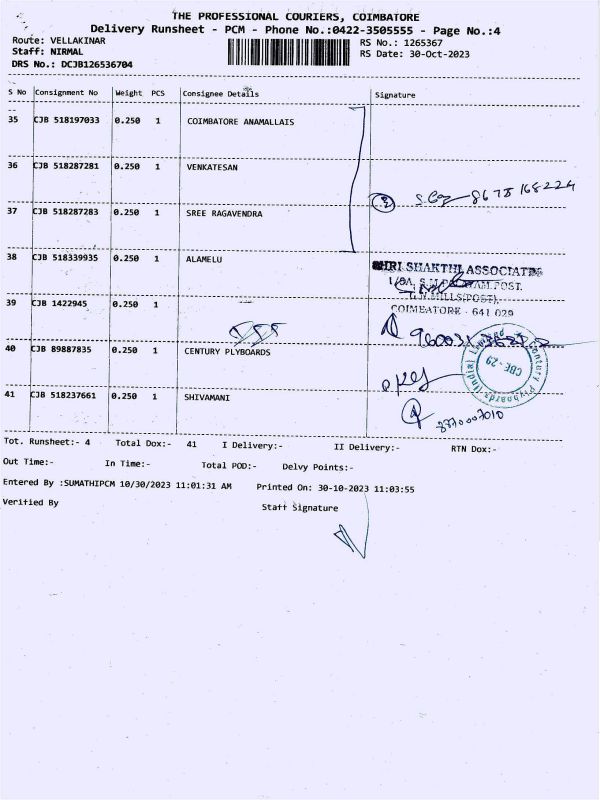 THE PROFESSIONAL COURIERS, COIMBATORE
Delivery Runsheet - PCM - Phone No.:0422-3505555 - Page No.:4
Route: VELLAKINAR RS No.: 1265367
Staff: NIRMAL RS Date: 30-Oct-2023
DRS No.: DCJB126536704
S No Consignment No Weight PCS Consignee Details Signature
35 CJB 518197033 0.250 1 COIMBATORE ANAMALLAIS
36 CJB 518287281 0.250 1 VENKATESAN
37 CJB 518287283 0.250 1 SREE RAGAVENDRA
38 CJB 518339935 0.250 1 ALAMELU
SHRI SHAKTHI ASSOCIATES
G.N.MILLS(POST),
COIMBATORE - 641 029
39 CJB 1422945 0.250 1
40 CJB 89887835 0.250 1 CENTURY PLYBOARDS
Century Plyboards (India) Limited
CBE - 29
41 CJB 518237661 0.250 1 SHIVAMANI
8870007010
Tot. Runsheet:- 4 Total Dox:- 41 I Delivery:- II Delivery:- RTN Dox:-
Out Time:- In Time:- Total POD:- Delvy Points:-
Entered By :SUMATHIPCM 10/30/2023 11:01:31 AM Printed On: 30-10-2023 11:03:55
Verified By Staff Signature